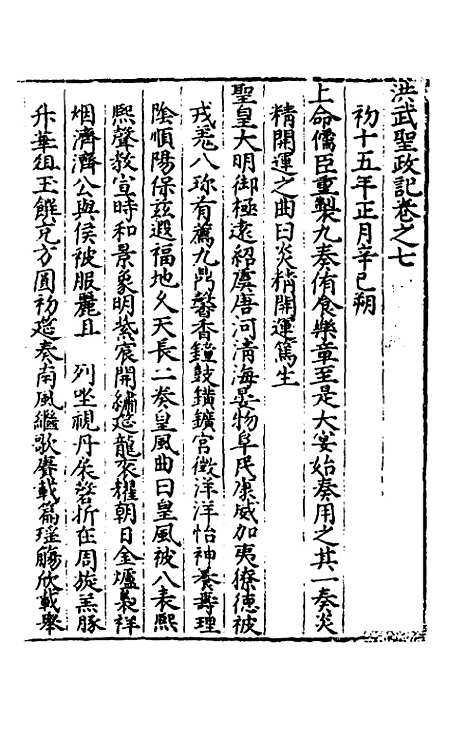 洪武聖政記卷之七
初十五年正月辛巳朔
上命儒臣重製九奏侑食樂章至是大宴始奏用之其一奏炎
精開運之曲曰炎精開運篤生
聖皇大明御極遠紹虞唐河清海晏物阜民康威加夷獠德被
戎羌八珍有薦九鼎馨香鐘鼓鐄鐄宮徵洋洋怡神養壽理
陰順陽保茲遐福地久天長二奏皇風曲曰皇風被八表熙
熙聲教宣時和景象明紫宸開繡筵龍衮耀朝日金爐裊祥
烟濟濟公與侯被服麗且 列坐視丹扆磬折在周旋羔豚
升華俎玉饌充方圓初筵奏南風繼歌賡載篇瑤觴欣載舉